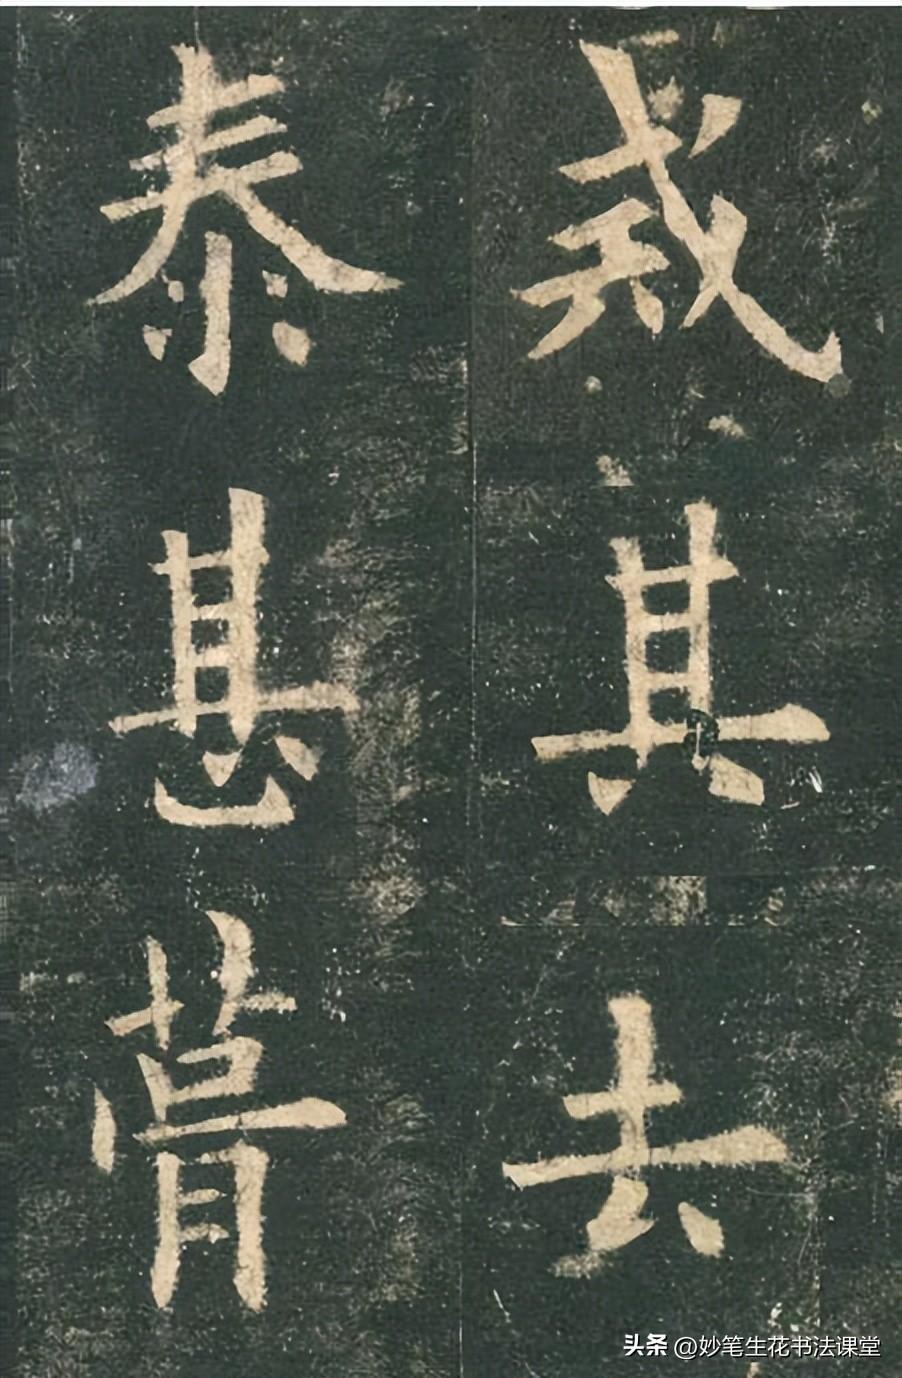 戒其去
泰甚
头条 @妙笔生花书法课堂